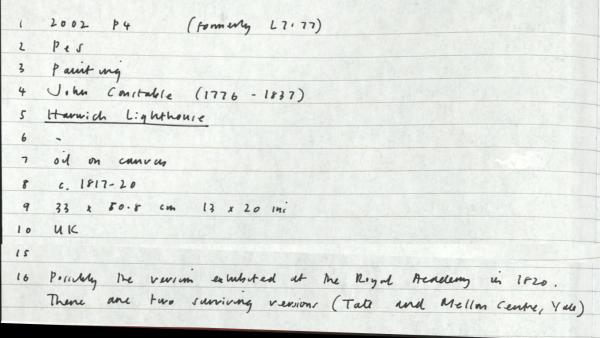 1 2002 P4 (formerly L7.77)
2 Pes
3 Painting
4 John Constable (1776 - 1837)
5 Harwich Lighthouse
6 -
7 oil on canvas
8 c. 1817-20
9 33 x 50.8 cm 13 x 20 ins
10 UK
15
16 Possibly the version exhibited at the Royal Academy in 1820.
There are two surviving versions (Tate and Mellon Centre, Yale)